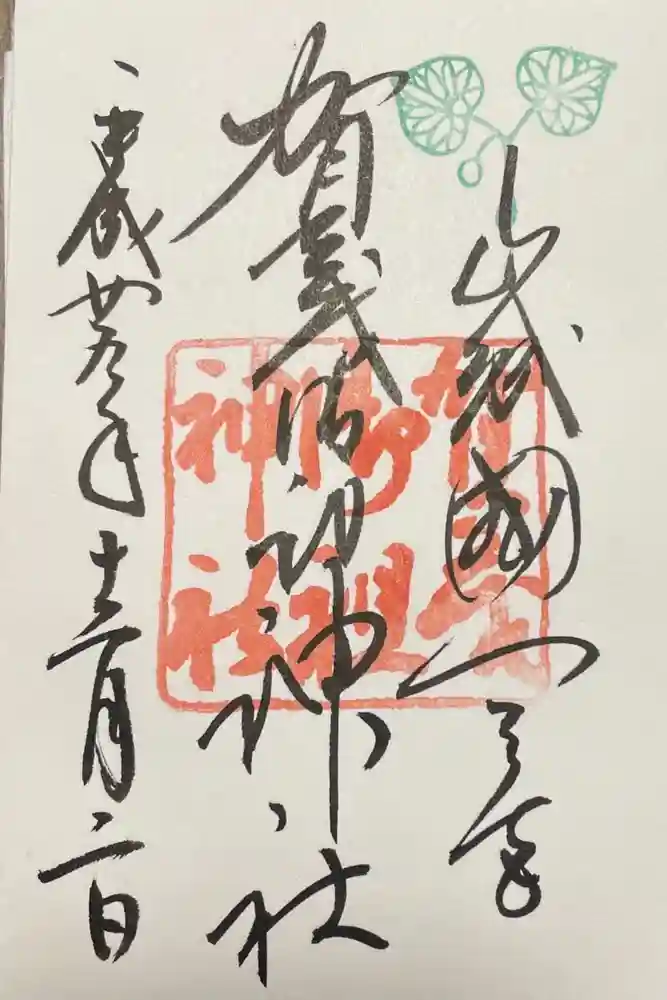 山城國一之宮
賀茂御祖神社
平成廿五年十二月二日
賀茂御祖神社